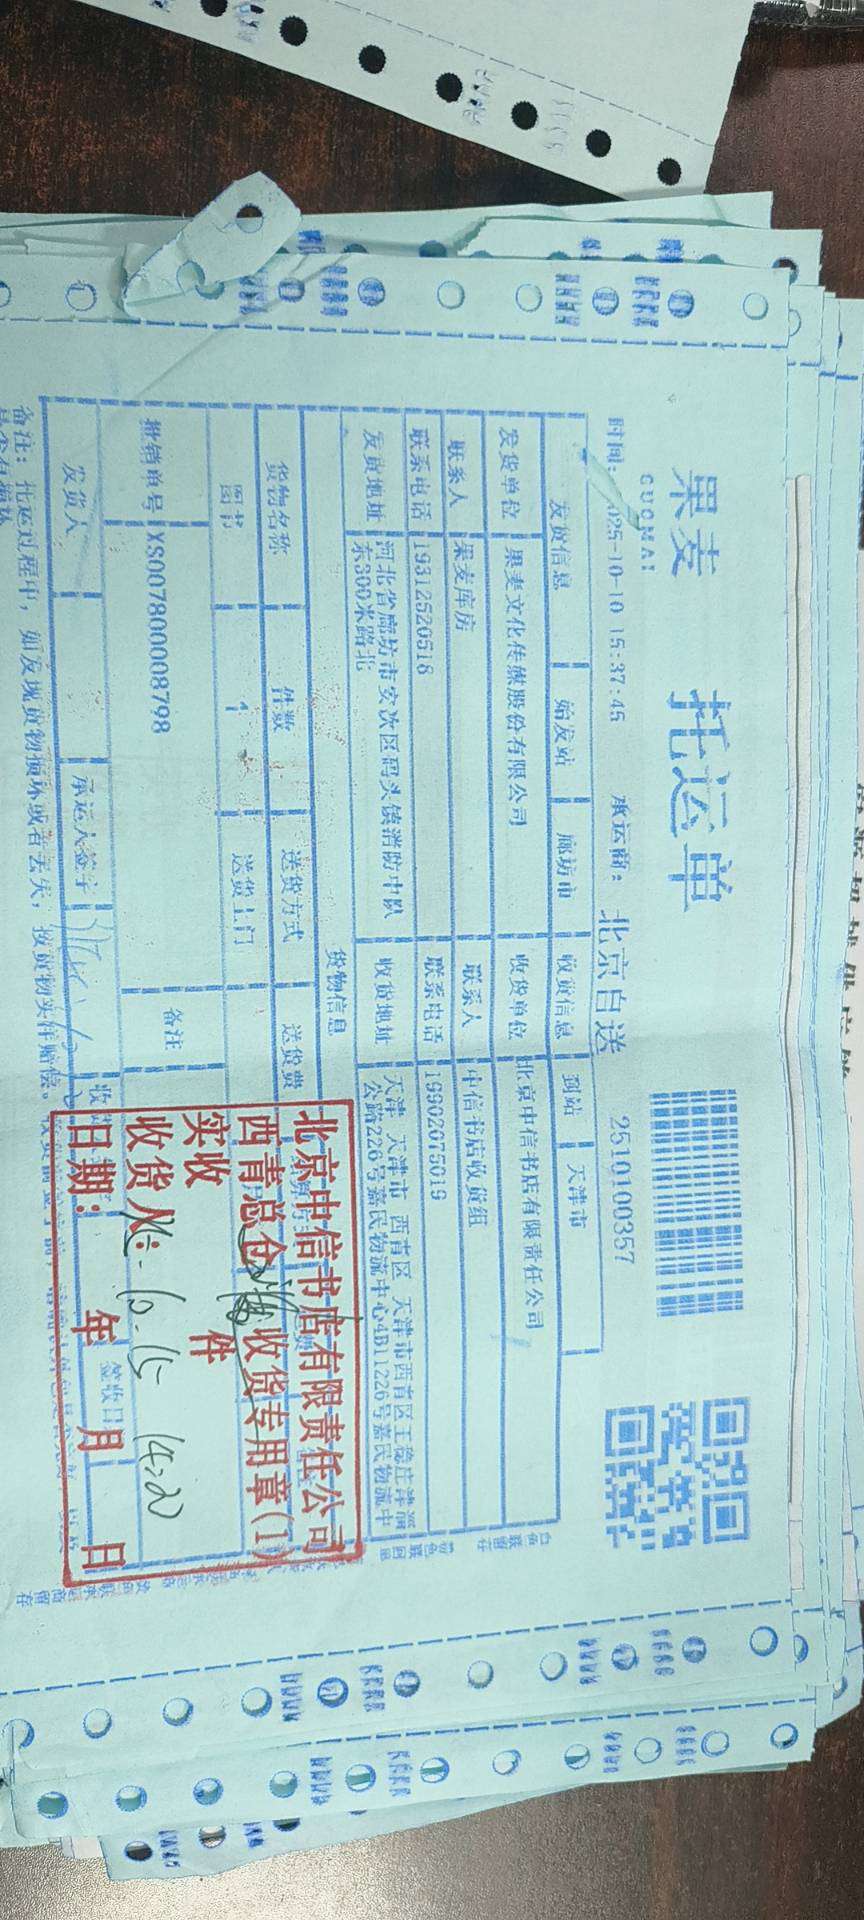 果麦
GUOMAI
托运单
时间: 2025-10-10 15:37:45
承运商: 北京自送
2510100357
发货信息 始发站 廊坊市 收货信息 到站 天津市
发货单位 果麦文化传媒股份有限公司 收货单位 北京中信书店有限责任公司
联系人 果麦库房 联系人 中信书店收货组
联系电话 19312520516 联系电话 19902075019
发货地址 河北省廊坊市安次区码头镇消防中队东300米路北
收货地址 天津 天津市 西青区 天津市西青区王稳庄津淄公路226号嘉民物流中心4B11226号嘉民物流中
货物信息
货物名称 件数 送货方式 送货费
图书 1 送货上门
撤销单号 XS007800008798 备注
发货人 承运人签字 签收日
备注: 托运过程中, 如发现货物损坏或者丢失, 按货物实洋赔偿。
北京中信书店有限责任公司
西青总仓 收货专用章(1)
实收 件
收货人:
日期: 年 月 日
10-15 14:20